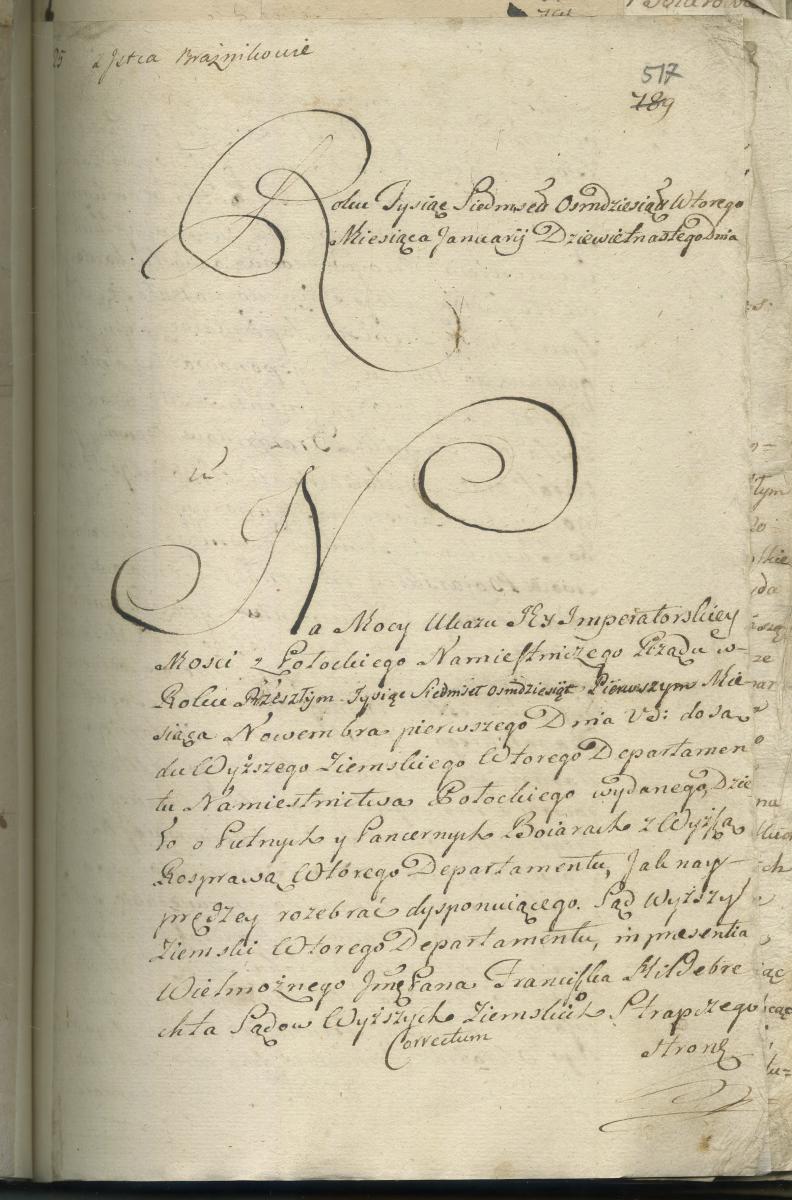 z Jstca Braźnikowie
517
789
Roku Tysiąc Siedmset Osmdziesiąt Wtorego
Miesiąca Januarij Dziewietnastego Dnia
Na Mocy Ukazu Jey Imperatorskiey
Mosci z Połockiego Namiestniczego Rządu w
Roku Przeszłym Tysiąc Siedmset osmdziesiąt Pierwszym Mie-
siąca Nowembra pierwszego Dnia V.S: do sa
du Wyższego Ziemskiego Wtorego Departamen
tu Namiestnictwa Połockiego wydanego, Dzie
ło o Putnych y Pancernych Boiarach z Wyższą
Rosprawą Wtórego Departamentu, Jak nay-
prędzey rozebrać dysponuiącego. Sąd Wyższy
Ziemski Wtorego Departamentu, in presentia
Wielmożnego Jmę Pana Franciszka Hildebre
chta Sądow Wyższych Ziemskich Strapczego
Correctum
Stronę